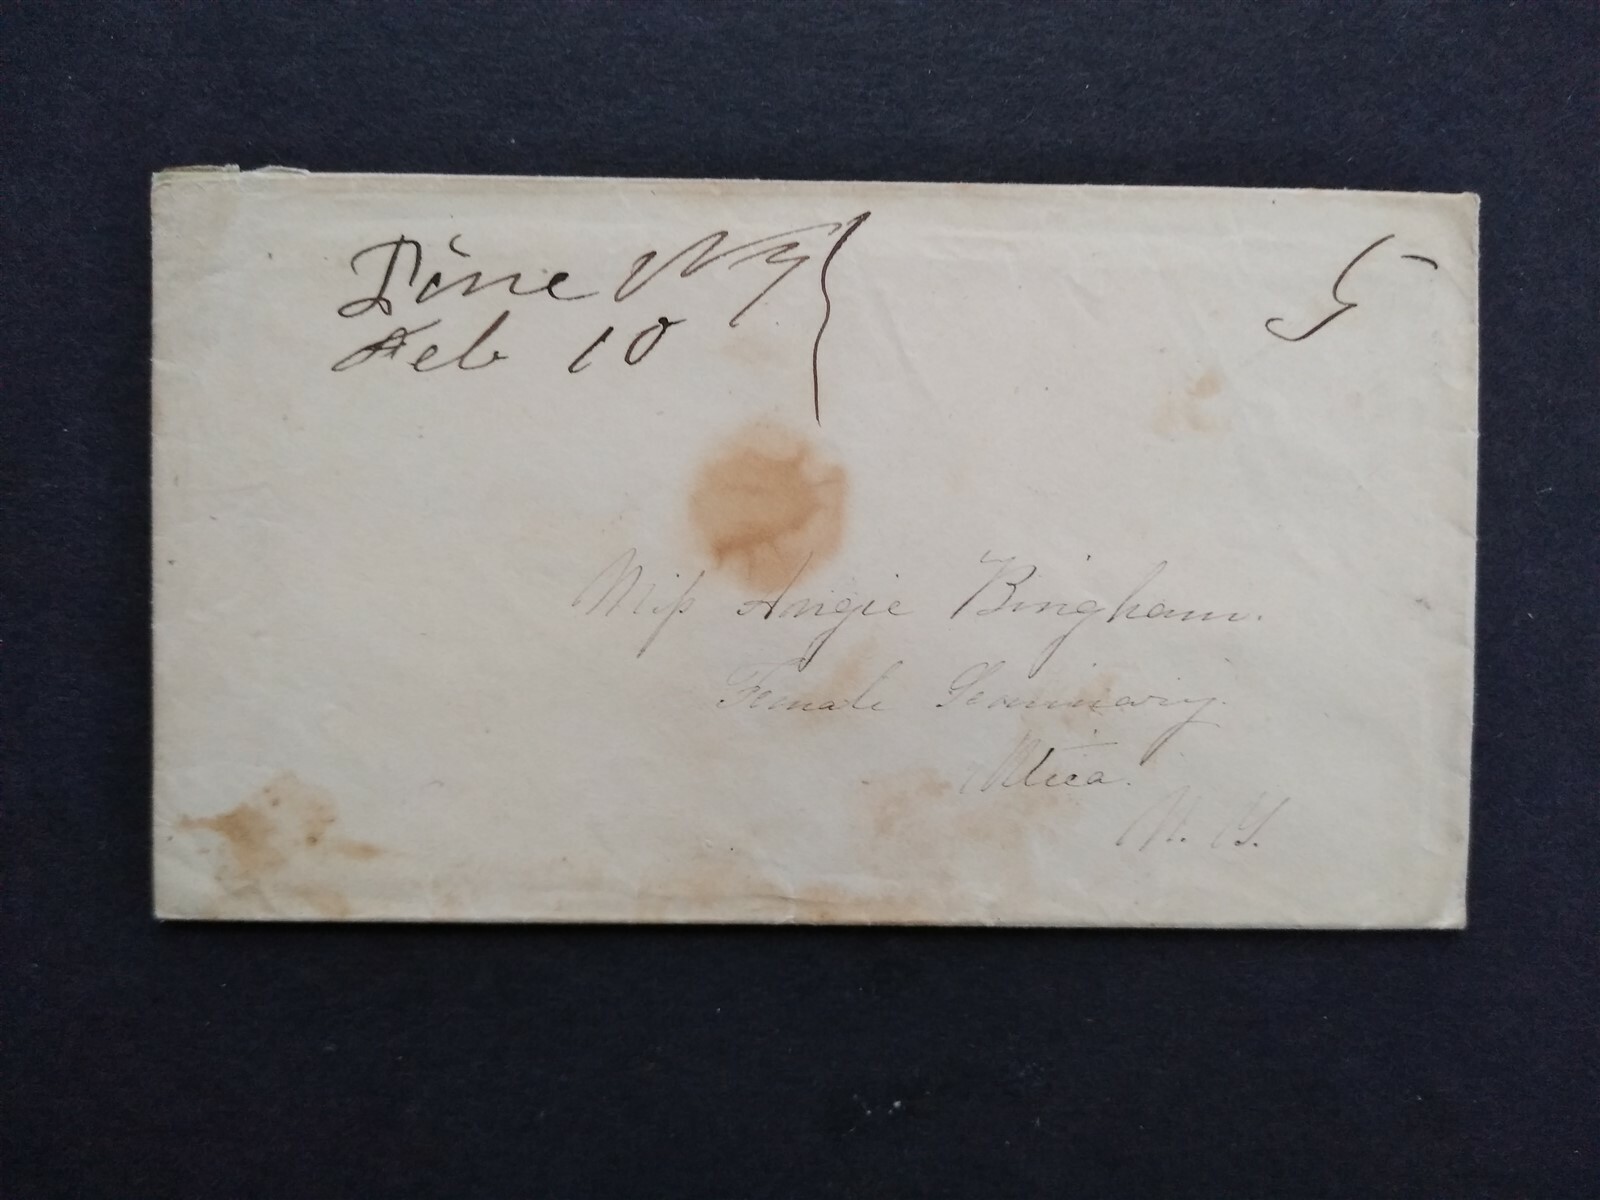 Pine NY
Feb 10
5
Miss Angie Bingham.
Female Seminary.
Utica.
N. Y.